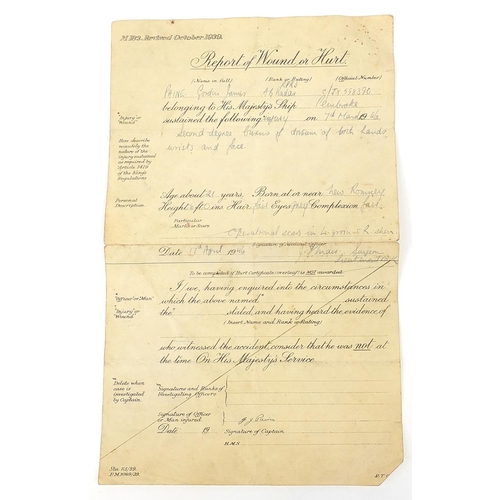 M.183. Revised October 1938.
Report of Wound or Hurt.
(Name in full) (Rank or Rating) (Official Number)
Gordon James
belonging to His Majesty's Ship Pembroke
"Injury or Wound"
sustained the following injury on 7th March 1946
How describe minutely the nature of the injury sustained as required by Article 1419 of the King's Regulations
Second degree burns of dorsum of both hands,
wrists and face.
Age about 21 years, Born at or near New Romney
Personal Description
Height ft. ins. Hair fair Eyes Complexion fair
Particular Marks or Scars
Operational scar in groin
Date April 1946 Signature of Medical Officer Surgeon
To be completed if Hurt Certificate (overleaf) is NOT awarded.
"Officer or Man"
I we, having enquired into the circumstances in
which the above named sustained
"Injury or Wound"
the stated, and having heard the evidence of
(Insert Name and Rank or Rating)
who witnessed the accident, consider that he was not at
the time On His Majesty's Service.
Delete when case is investigated by Captain.
Signatures and Ranks of Investigating Officers
Signature of Officer or Man injured
Date 19 Signature of Captain
H.M.S.
Sta. 51/39.